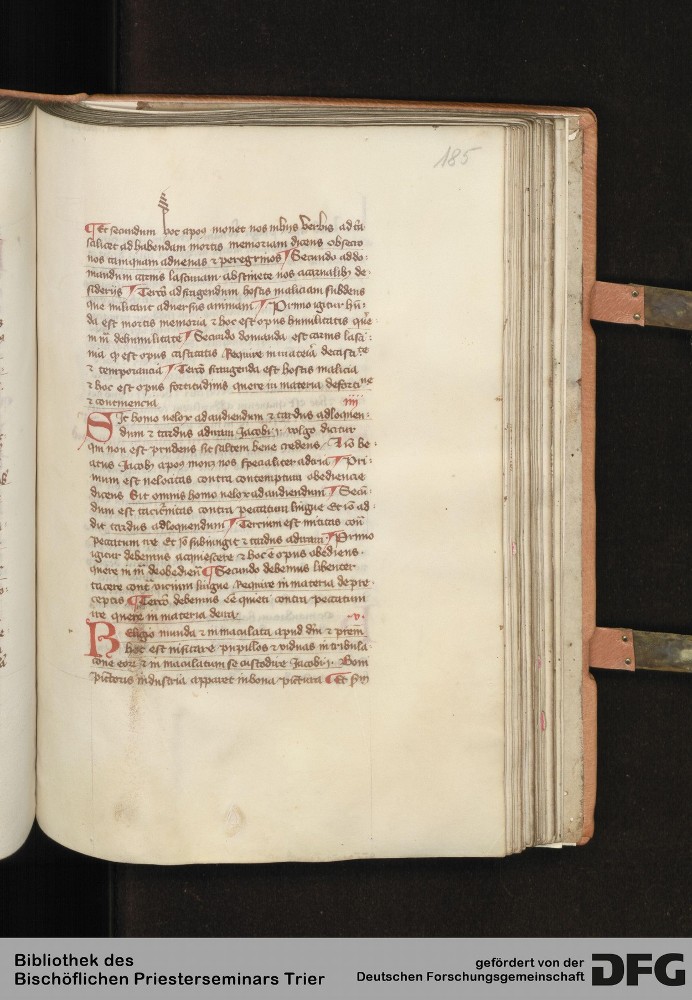 185
Et secundum hoc apos monet nos in hiis verbis ad tria
scilicet ad habendam mortis memoriam dicens obsecro
vos tamquam advenas et peregrinos Secundo ad do-
mandum carnis lasciviam abstinete vos a carnalib de-
sideriis Tercio ad fugandum hostis maliciam subdens
que militant adversus animam Primo igitur
da est mortis memoria et hoc est opus humilitatis quere
in de humilitate Secundo domanda est carnis lasci-
via et est opus castitatis Require in materia de casti
et temperancia Tercio fuganda est hostis malicia
et hoc est opus fortitudinis quere in materia de forti
et continencia iiii
Sit homo velox ad audiendum et tardus ad loquen-
dum et tardus ad iram Jacobi i volgo dicitur
qui non est prudens sit saltem bene credens be-
atus Jacob apos monet nos specialiter ad tria Pri-
mum est velocitas contra contemptum obediencie
dicens Sit omnis homo velox ad audiendum Secun
dum est taciturnitas contra peccatum lingue Et io ad-
dit tardus ad loquendum Tercium est mititas con
peccatum ire Et io subiungit et tardus ad iram Primo
igitur debemus acquiescere et hoc e opus obediens
quere in de obedien Secundo debemus libenter
tacere cont vicium lingue Require in materia de pre-
ceptis Tercio debemus ee quieti contra peccatum
ire quere in materia de ira v
Religio munda et inmaculata apud dm et prem
hec est visitare pupillos et viduas in tribula
cione eor et inmaculatum se custodire Jacobi i Boni
pictoris industria apparet in bona pictura Et
Bibliothek des
Bischöflichen Priesterseminars Trier
gefördert von der
Deutschen Forschungsgemeinschaft
DFG